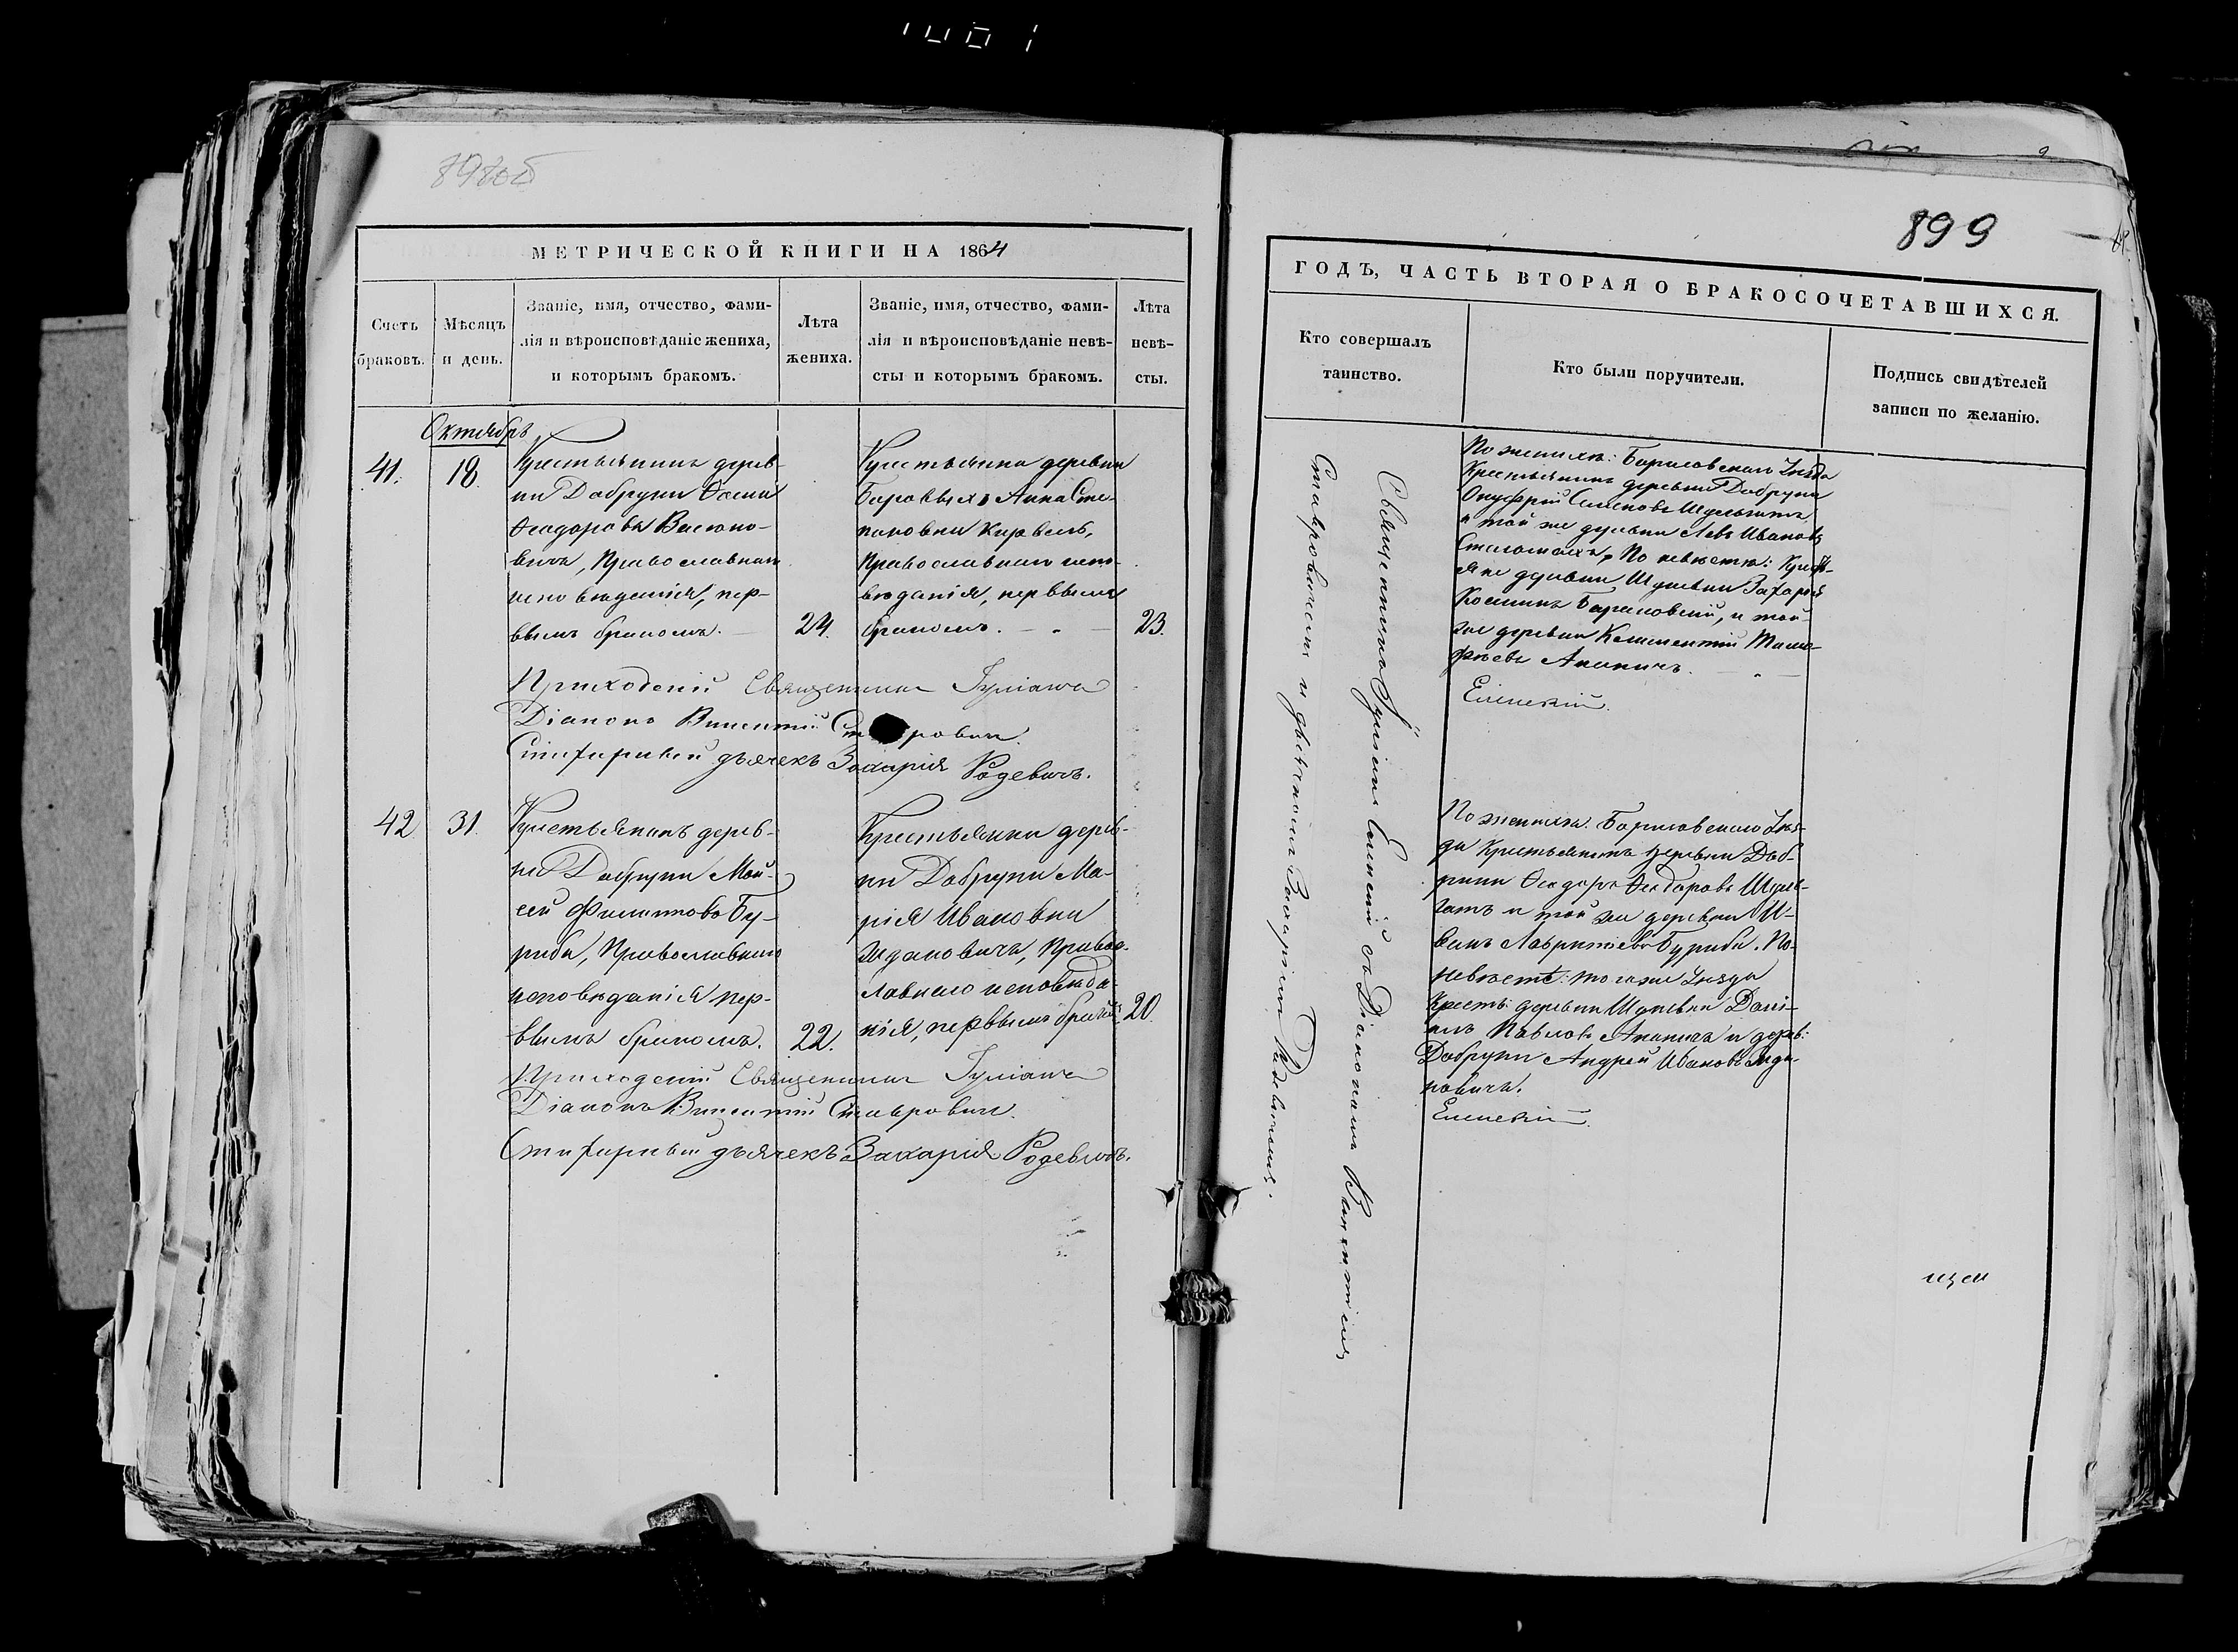 898об
МЕТРИЧЕСКОЙ КНИГИ НА 1864
Счетъ браковъ.
Мѣсяцъ и день.
Званіе, имя, отчество, фами-
лія и вѣроисповѣданіе жениха,
и которымъ бракомъ.
Лѣта жениха.
Званіе, имя, отчество, фами-
лія и вѣроисповѣданіе невѣ-
сты и которымъ бракомъ.
Лѣта невѣ-
сты.
Октябрь
41.
18.
Крестьянинъ дерев-
ни Добруни
Ѳеодоровъ Васюко-
вичъ, Православнаго
исповѣданія, пер-
вымъ бракомъ.
24.
Крестьянка деревни
Боровыхъ Анна Сте-
пановна Киревль,
Православнаго испо-
вѣданія, первымъ
бракомъ.
23.
Приходскій Священникъ Іуліанъ
Діаконъ Викентій Ст ровичъ.
Стихарный дьячекъ Захарія Родевичъ.
42
31.
Крестьянинъ дерев-
ни Добруни Мой-
сей Филиповъ Бу-
риба, Православнаго
исповѣданія пер-
вымъ бракомъ.
22.
Крестьянка дерев-
ни Добруни Ма-
рія Иванова
Ждановичъ, Правос-
лавнаго исповѣда-
нія, первымъ бракомъ
20.
Приходскій Священникъ Іуліанъ
Діаконъ Викентій Ставровичъ.
Стихарный дьячекъ Захарія Родевичъ.
899
ГОДЪ, ЧАСТЬ ВТОРАЯ О БРАКОСОЧЕТАВШИХСЯ.
Кто совершалъ
таинство.
Кто были поручители.
Подпись свидѣтелей
записи по желанію.
Священникъ Іуліанъ Еленскій съ Діакономъ Викентіемъ
Ставровичемъ и дьячкомъ Захаріемъ Родевичемъ.
По женихѣ: Борисовскаго Уѣзда
Крестьянинъ деревни Добруни
Онуфрій Семеновъ
и той же деревни Левъ Ивановъ
По невѣстѣ: Кресть-
яне деревни Захарія
Косминъ Барановскій, и той-
же деревни Климентій Тимо-
фѣевъ Ананичъ.
Еленскій.
По женихѣ. Борисовскаго Уѣз-
да Крестьянинъ деревни Доб-
руни Ѳеодоръ Ѳеодоровъ Шуль-
гатъ и той же деревни И-
ванъ Лаврентіевъ Буриба. По
невѣстѣ: того же Уѣзда
Кресть: деревни Дані-
илъ Павловъ Ананичъ и дерев:
Добруни Андрей Ивановъ Жда-
новичъ.
Еленскій